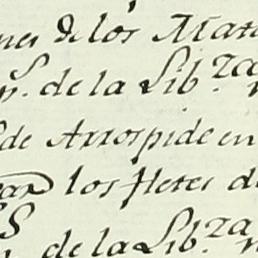 nes de los Mata
n. de la Lib.za
de Arrospide en
los fletes d
S
de la Lib.za